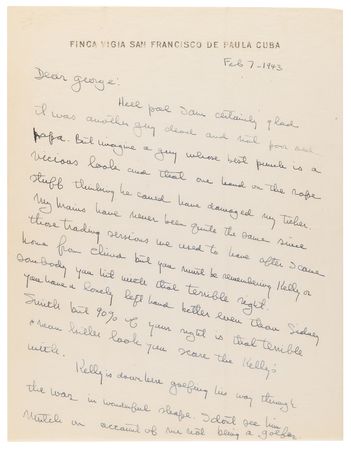 FINCA VIGIA SAN FRANCISCO DE PAULA CUBA
Feb 7-1943
Dear George:
Hell pal I am certainly glad
it was another guy dead and not poor old
papa. But imagine a guy whose best punch is a
vicious look and that one hand on the rope
stuff thinking he could have damaged my ticker
My brains have never been quite the same since
those trading sessions we used to have after I came
home from China but you must be remembering Kelly or
somebody you hit with that terrible right.
You have a lovely left hand better even than Sidney
Smith but 90% of your right is that terrible
mean killer look you scare the Kelly's
with.
Kelly is down here golfing his way through
the war in wonderful shape. I don't see him
much on account of me not being a golfer